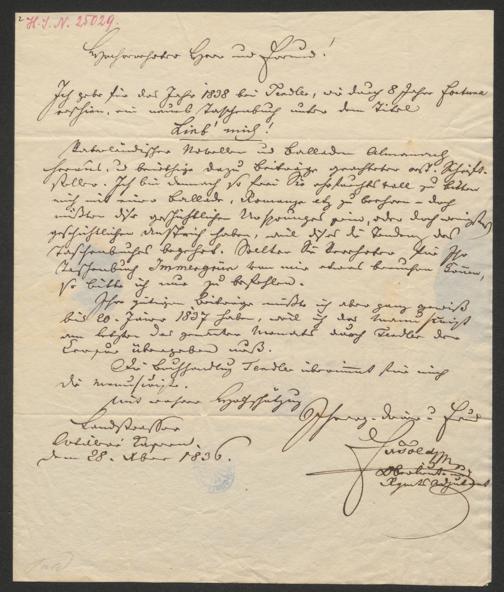 H. I. N. 25029.
Hochverehrter Herr und Freund!
Ich gebe für das Jahr 1838 bei Tendler, wie durch 8 Jahre Fortuna
erschien, ein neues Taschenbuch unter dem Titel
Lieb' mich!
Vaterländischer Novellen und Balladen Almanach
heraus, und benöthige dazu Beiträge geachteter Schrift-
steller. Ich bin demnach so frei Sie zu bitten
mich mit einer Ballade, Romanze etz zu beehren – doch
müßten diese geschichtlichen Ursprunges sein, oder doch wenigstens
geschichtlichen Anstrich haben, weil dieses die Tendenz des
Taschenbuches begehrt. Sollten Sie Verehrter für Ihr
Taschenbuch Immergrün von mir etwas brauchen können,
so bitte ich nur zu befehlen.
Ihre gütigen Beiträge müßte ich aber ganz gewiß
bis 20. Jäner 1837 haben, weil ich das Manuscript
am letzten des genannten Monats durch Tendler der
Censur übergeben muß.
Die Buchhandlung Tendler übernimmt für mich
die Manuscripte.
Mit wahrer Hochschätzung
Landstrasse
den 28. 1836.